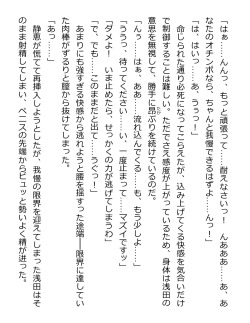 「はぁ　んんっ、もっと頑張って……耐えなさいっ！　んあああ……あ、あ
なたのオチンポなら、ちゃんと我慢できるはずよ……んっ！」
「は、はいっ……うあっ、あ、あ……」
　命じられた通り必死になってこらえたが、込み上げてくる快感を気合いだけ
で制御することは難しい。ただでさえ感度が上がっているため、身体は浅田の
意思を無視して、勝手に昂ぶりを続けているのだ。
「んっ……はぁ、ああ……流れ込んでくる……も、もう少しよ……」
「ううっ、待ってください……い、一度止まって……マズイですッ」
「ダメよ！　いま止めたら、せっかくの力が逃げてしまうわ」
「で、でも……このままだと出て……うぐっ！」
　あまりにも強すぎる快感から逃れようと腰を揺すった途端──限界に達してい
た肉棒がずるりと膣から抜けてしまった。
「あっ……」
　静恵が慌てて再挿入しようとしたが、我慢の限界を迎えてしまった浅田はそ
のまま射精してしまい、ペニスの先端からピュッと勢いよく精が迸った。